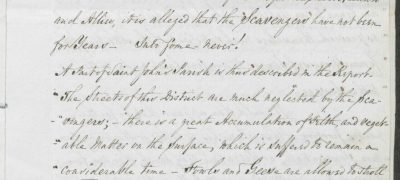 and Allies, it is alleged that the "Scavengers" have not been
for Years — Into some never!
A Part of Saint John's Parish is thus described in the Report
"The Streets of this District are much neglected by the Sca-
"vengers; — there is a great Accumulation of Filth, and veget-
"able Matter on the Surface, which is suffered to remain a
"considerable time — Fowls and Geese are allowed to stroll